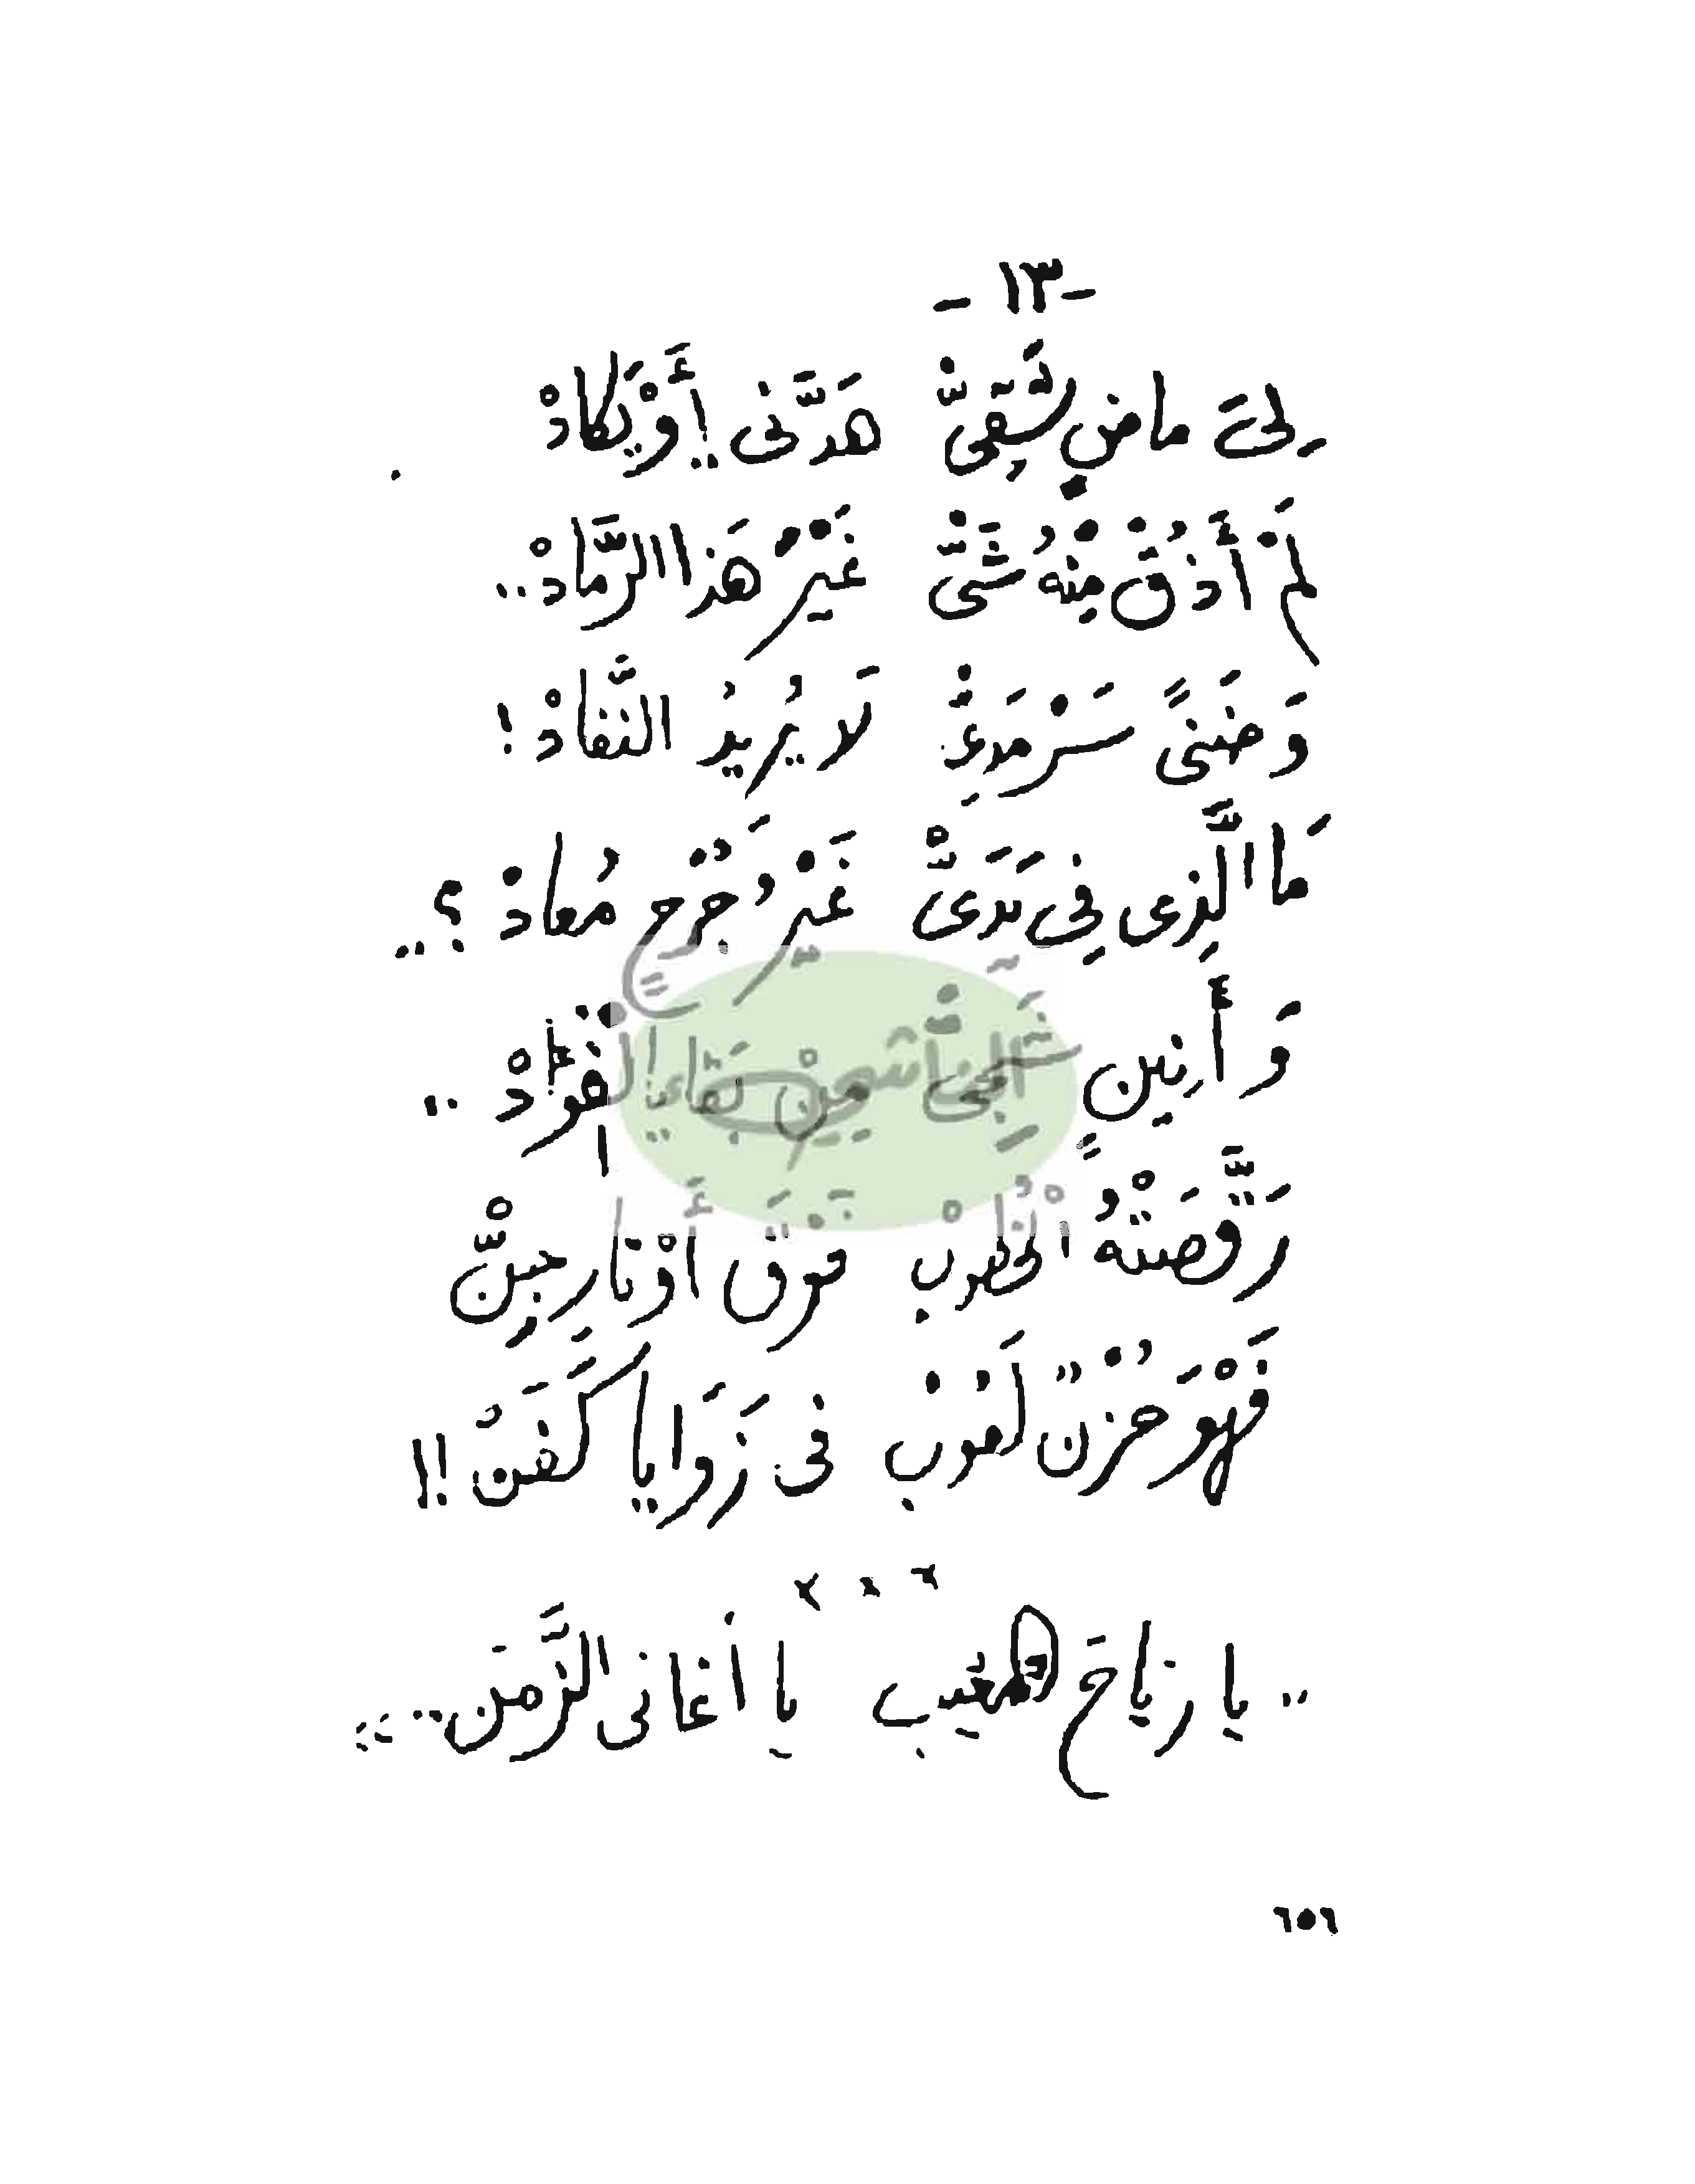 - ١٣ -
لِىَ ماضٍ شَقِىّْ هَدَّنى.. أَوْ يَكادْ
لَمْ أَذُقْ مِنْهُ شَىّْ غَيْرَ هَذا الرَّمادْ..
وَضَنىً سَرْمَدِىّْ لَا يُرِيدُ النَّفادْ !
مَا الَّذِى فِى يَدَىّْ غَيْرُ جُرْحٍ مُعادْ ؟..
وَأَنِينٍ شَجِىّْ مِنْ بَقايا الْفُؤادْ..
رَقَّصَتْهُ الْخُطُوبْ فَوْقَ أَوْتارِ جِنّْ
فَهْوَ حُزْنٌ لَعُوبْ فى زَوَايا كَفَنْ !!
.. يا رِياحَ المغيب يا أغانى الزَّمَن..
٦٥٦